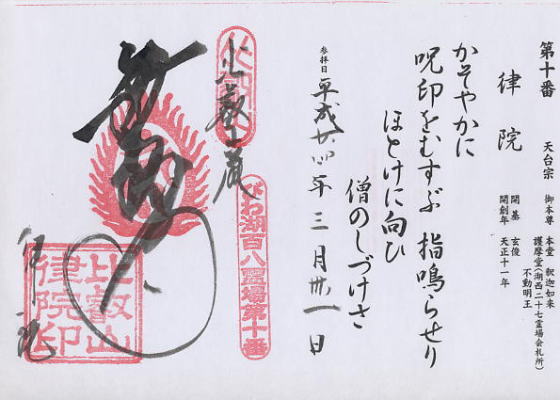 第十番
律院
天台宗
御本尊 本堂 釈迦如来
護摩堂(湖西二十七霊場会札所)
不動明王
開基 玄俊
開創年 天正十一年
かそやかに
呪印をむすぶ 指鳴らせり
ほとけに向ひ
僧のしづけさ
参拝日 平成廿四年 三月卅一日
びわ湖百八霊場第十番
比叡山
律院印
律院